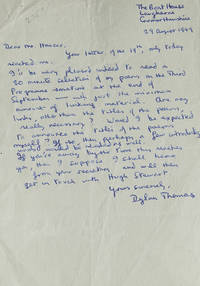 The Boat House
Laugharne
Carmarthenshire
29 August 1949
Dear Mr. 
Your letter, of the 19th, only today
reached me.
I'd be very pleased indeed to read a
20 minute selection of my poems in the Third
Programme sometime at the end of
September – with just the minimum
amount of linking material. Are any
links, other than the titles of the poems,
really necessary? Would I be expected
to announce the titles of the poems
myself? If so, then perhaps, a few introductory
words would be needed as well.
If you're away by the time this reaches
you, then I suppose I shall hear
from your secretary and will then
get in touch with Hugh Stewart
Yours sincerely,
Dylan Thomas